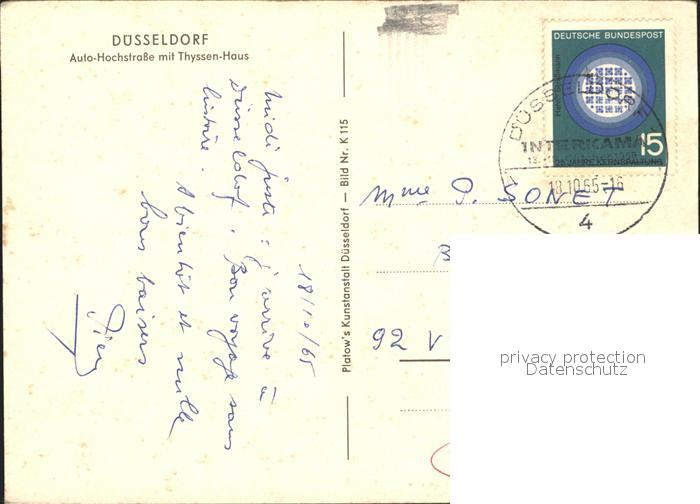 DÜSSELDORF
Auto-Hochstraße mit Thyssen-Haus
18/10/65
Midi juste : j'arrive à
Düsseldorf. Bon voyage sans
histoire.
A bientôt et mille
bons baisers
Platow's Kunstanstalt Düsseldorf — Bild Nr. K 115
DEUTSCHE BUNDESPOST
15
JAHRE KERNSPALTUNG
DÜSSELDORF
INTERKAMA
18.10.65-16
4
Mme P. SONET
92 V
privacy protection
Datenschutz